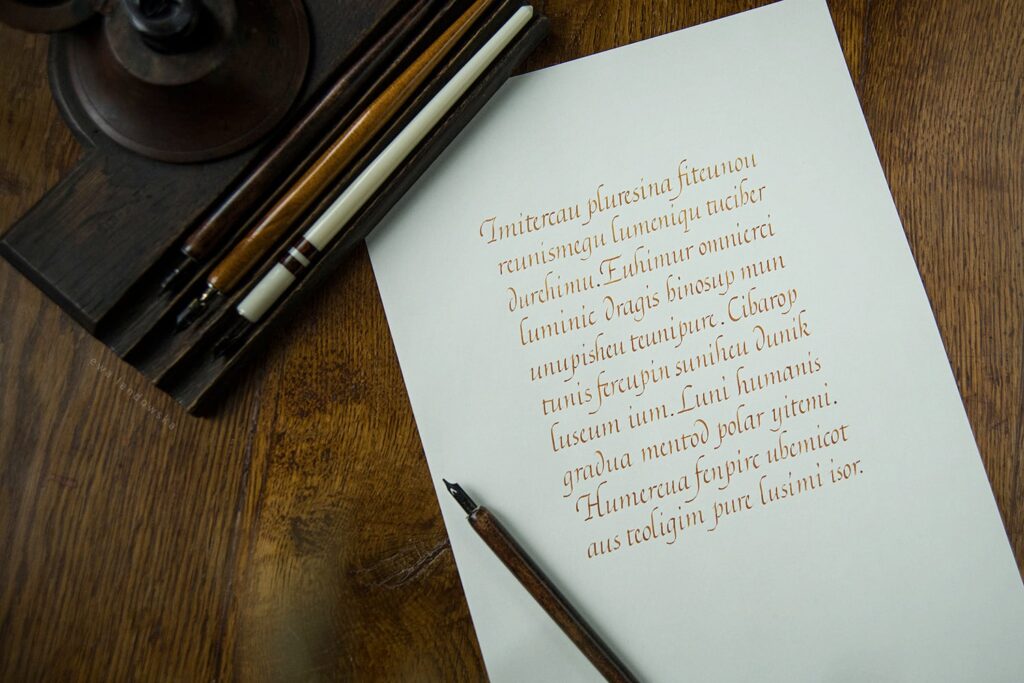 Imitereau pluresina fiteunou
reunismegu lumeniqu tuciber
durehimu. Euhimur omnierci
luminie dragis binosup mun
unupisheu teunipure. Cibarop
tunis fereupin suniheu dunik
luseum ium. Luni humanis
gradua mentod polar yitemi.
Humereua fenpire ubemicot
aus teoligim pure lusimi isor.